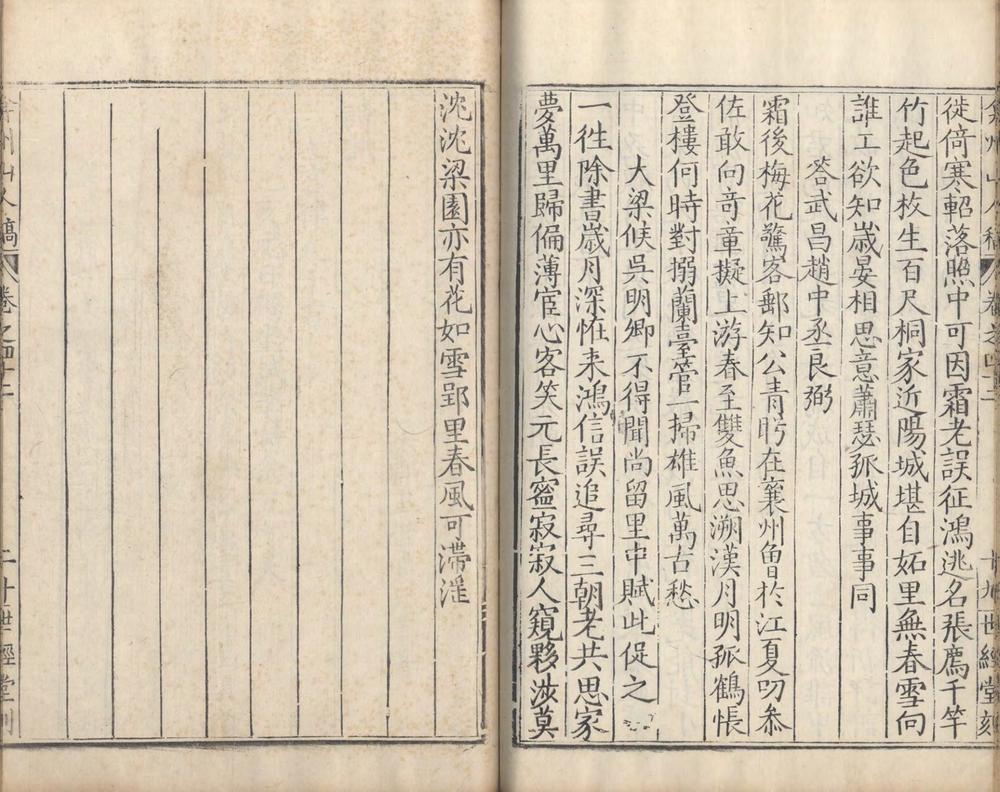 弇州山人稿 卷之四十二 十九 世經堂刻
徙倚寒軺落照中可因霜老誤征鴻逃名張廌千竿
竹起色枚生百尺桐家近陽城堪自妬里無春雪向
誰工欲知歲晏相思意蕭瑟孤城事事同
答武昌趙中丞良弼
霜後梅花驚客郵知公青眄在襄州曾於江夏叨叅
佐敢向竒童擬上游春至雙魚思溯漢月明孤鶴悵
登樓何時對搦蘭臺管一掃雄風萬古愁
大梁候吳明卿不得聞尚留里中賦此促之
一徃除書歲月深恠来鴻信誤追尋三朝老共思家
夢萬里歸偏薄宦心客笑元長寧寂寂人窺夥涉莫
沈沈梁園亦有花如雪郢里春風可滯淫
弇州山人稿 卷之四十二 二十 世經堂刻